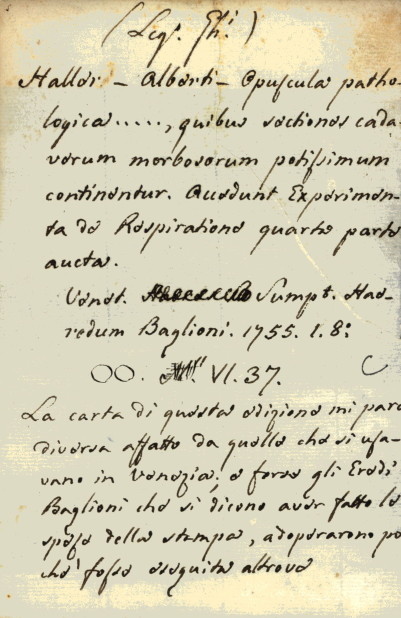 (Leg. )
Haller. – Alberti – Opuscula patho-
logica ....., quibus sectiones cada-
verum morbosorum potissimum
continentur. Accedunt Experimen-
ta de Respiratione quarta parte
aucta.
Venet. Sumpt. Hae-
redum Baglioni. 1755. 1. 8:
OO. VI. 37.
La carta di questa edizione mi pare
diversa affatto da quella che si usa-
vano in Venezia: e forse gli Eredi
Baglioni che si dicono aver fatto le
spese della stampa, adoperarono per
chè fosse eseguita altrove